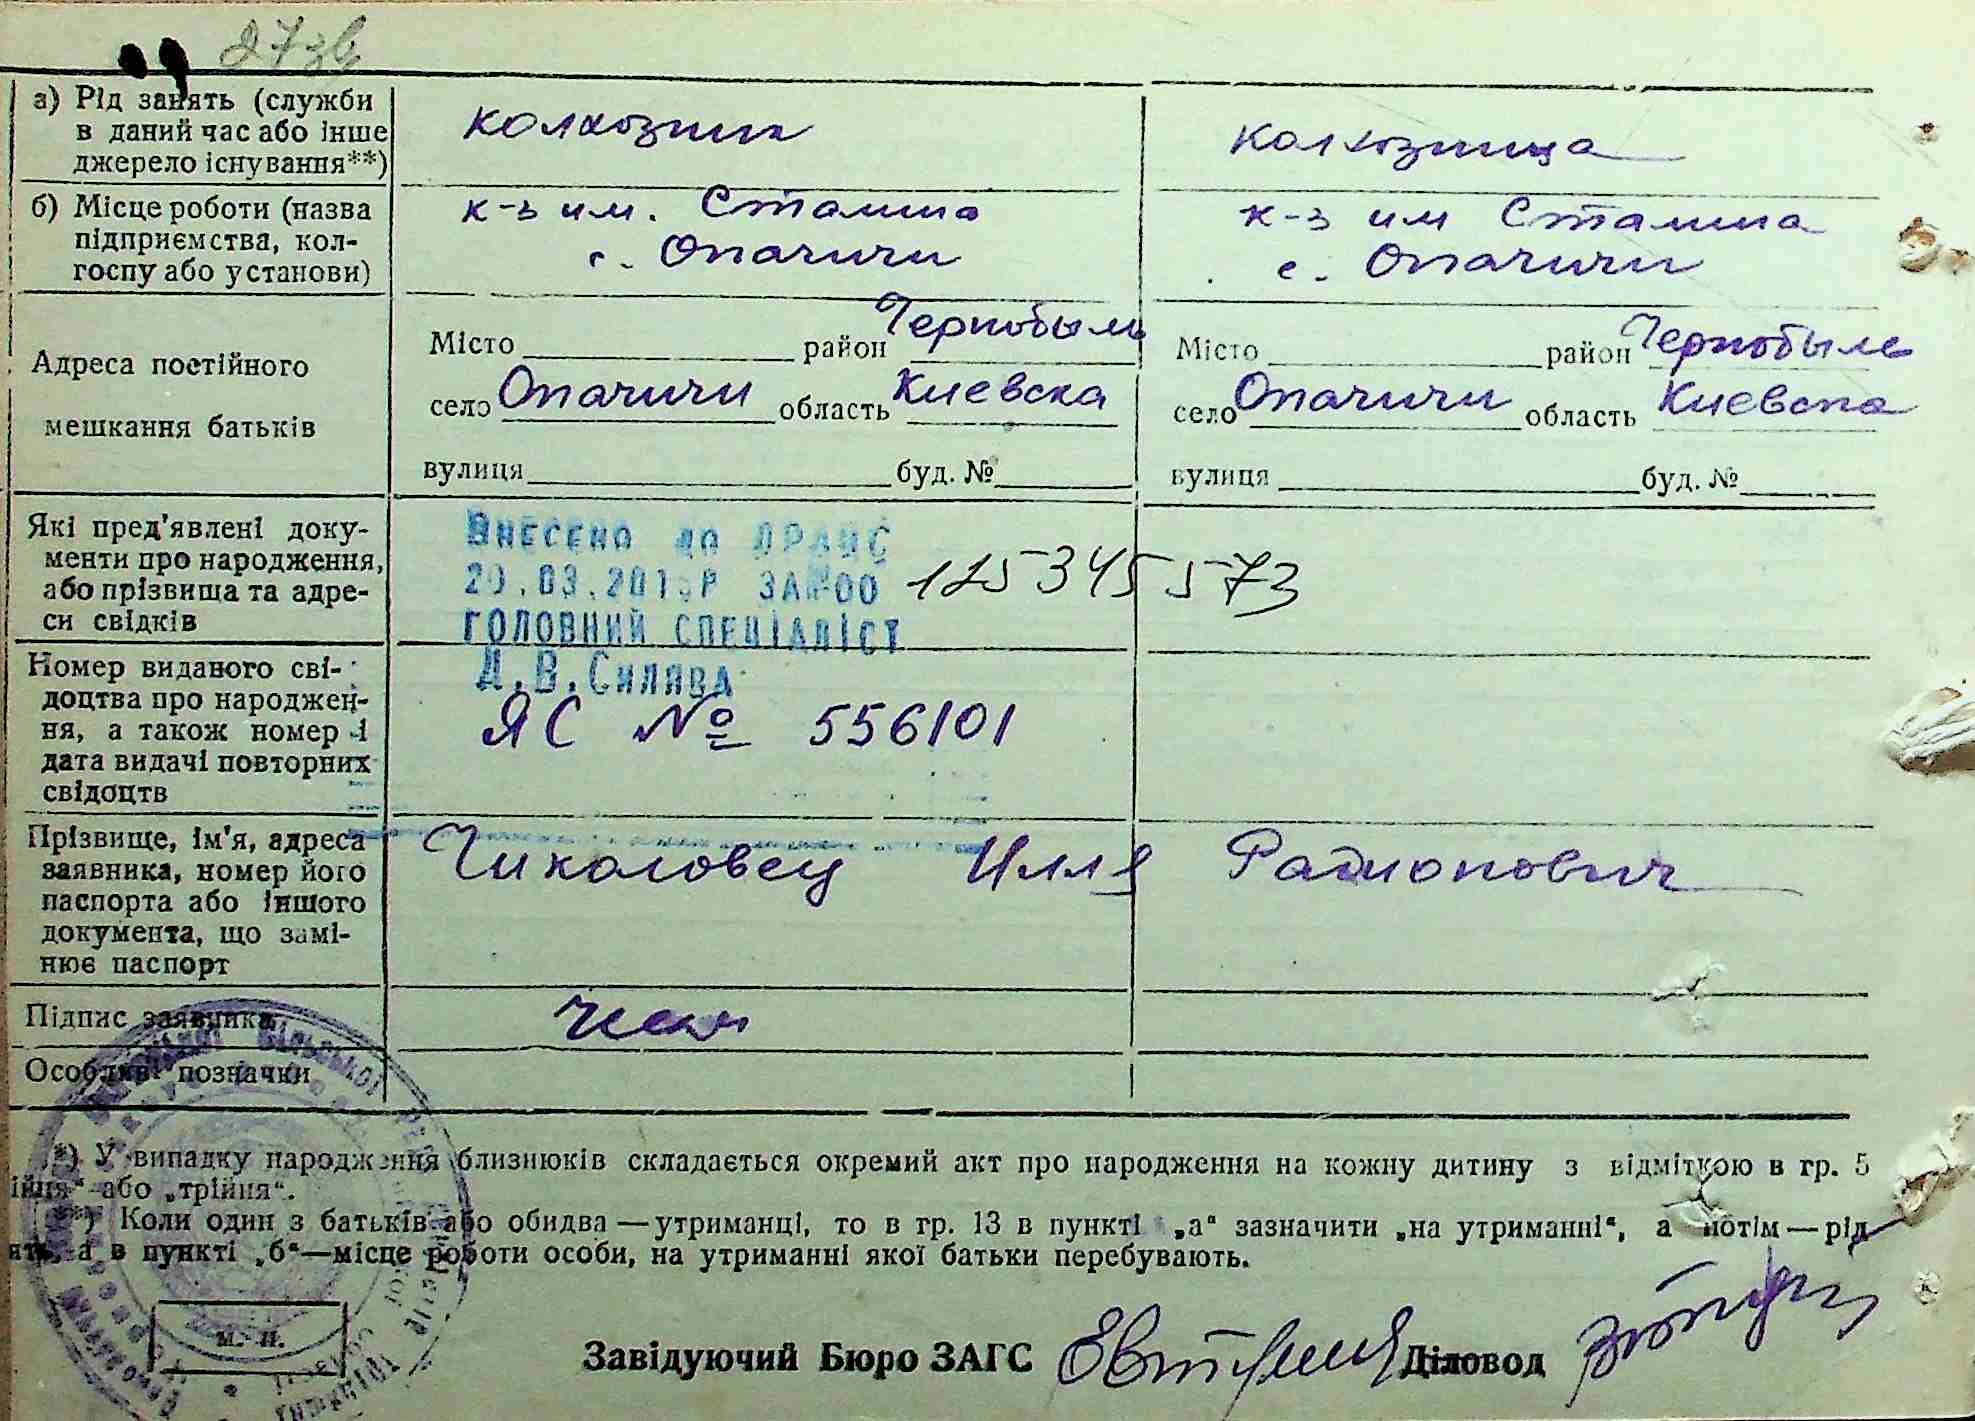 27зв
а) Рід занять (служби
в даний час або інше
джерело існування**)
колхозник
колхозница
б) Місце роботи (назва
підприємства, кол-
госпу або установи)
к-з им. Сталина
с. Опачичи
к-з им Сталина
с. Опачичи
Адреса постійного
мешкання батьків
Місто район Чернобыль
село Опачичи область Киевска
вулиця буд. №
Місто район Чернобыле
село Опачичи область Киевска
вулиця буд. №
Які пред'явлені доку-
менти про народження,
або прізвища та адре-
си свідків
Внесено до ДРАЦС
ЗА №00 125345573
ГОЛОВНИЙ СПЕЦІАЛІСТ
Д.В.Силява
Номер виданого сві-
доцтва про народжен-
ня, а також номер і
дата видачі повторних
свідоцтв
ЯС № 556101
Прізвище, ім'я, адреса
заявника, номер його
паспорта або іншого
документа, що замі-
нює паспорт
Чиколовец Илля Радионович
Підпис заявника
Особливі позначки
*) У випадку народження близнюків складається окремий акт про народження на кожну дитину з відміткою в гр. 5
ійня“ або „трійня“.
**) Коли один з батьків або обидва — утриманці, то в гр. 13 в пункті „а“ зазначити „на утриманні“, а потім — рід
ять, а в пункті „б“—місце роботи особи, на утриманні якої батьки перебувають.
М. П.
Завідуючий Бюро ЗАГС Діловод